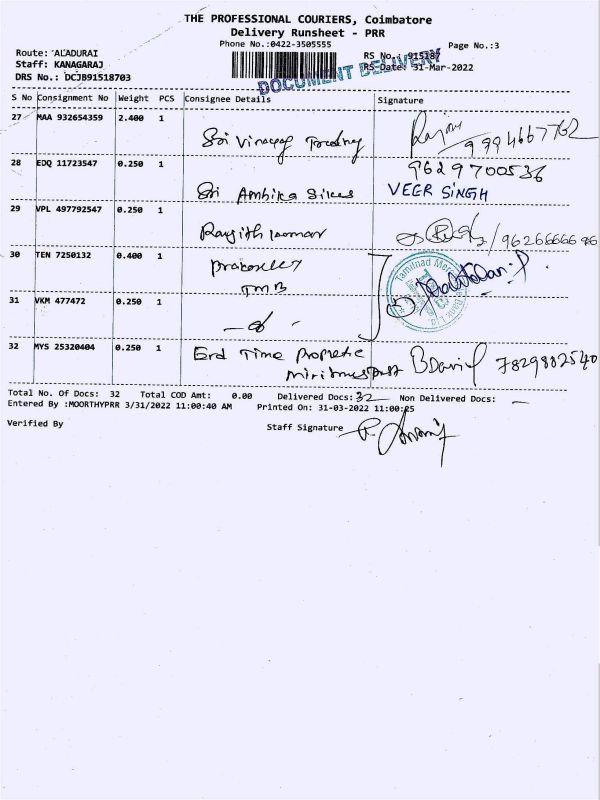 THE PROFESSIONAL COURIERS, Coimbatore
Delivery Runsheet - PRR
Phone No.:0422-3505555
Page No.:3
Route: ALADURAI
RS No.: 915187
Staff: KANAGARAJ
RS Date: 31-Mar-2022
DRS No.: DCJB91518703
DOCUMENT DELIVERY
S No Consignment No Weight PCS Consignee Details Signature
27 MAA 932654359 2.400 1 Sri Vinayag Trading 9994667762
28 EDQ 11723547 0.250 1 Sri Ambika Silks 9629700536
VEER SINGH
29 VPL 497792547 0.250 1 Ranjith kumar
30 TEN 7250132 0.400 1
TMB
Tamilnad Merc
31 VKM 477472 0.250 1
32 MYS 25320404 0.250 1 End Time Prophetic B David 7829882540
Total No. Of Docs: 32 Total COD Amt: 0.00 Delivered Docs: 32 Non Delivered Docs: —
Entered By :MOORTHYPRR 3/31/2022 11:00:40 AM Printed On: 31-03-2022 11:00:25
Verified By Staff Signature